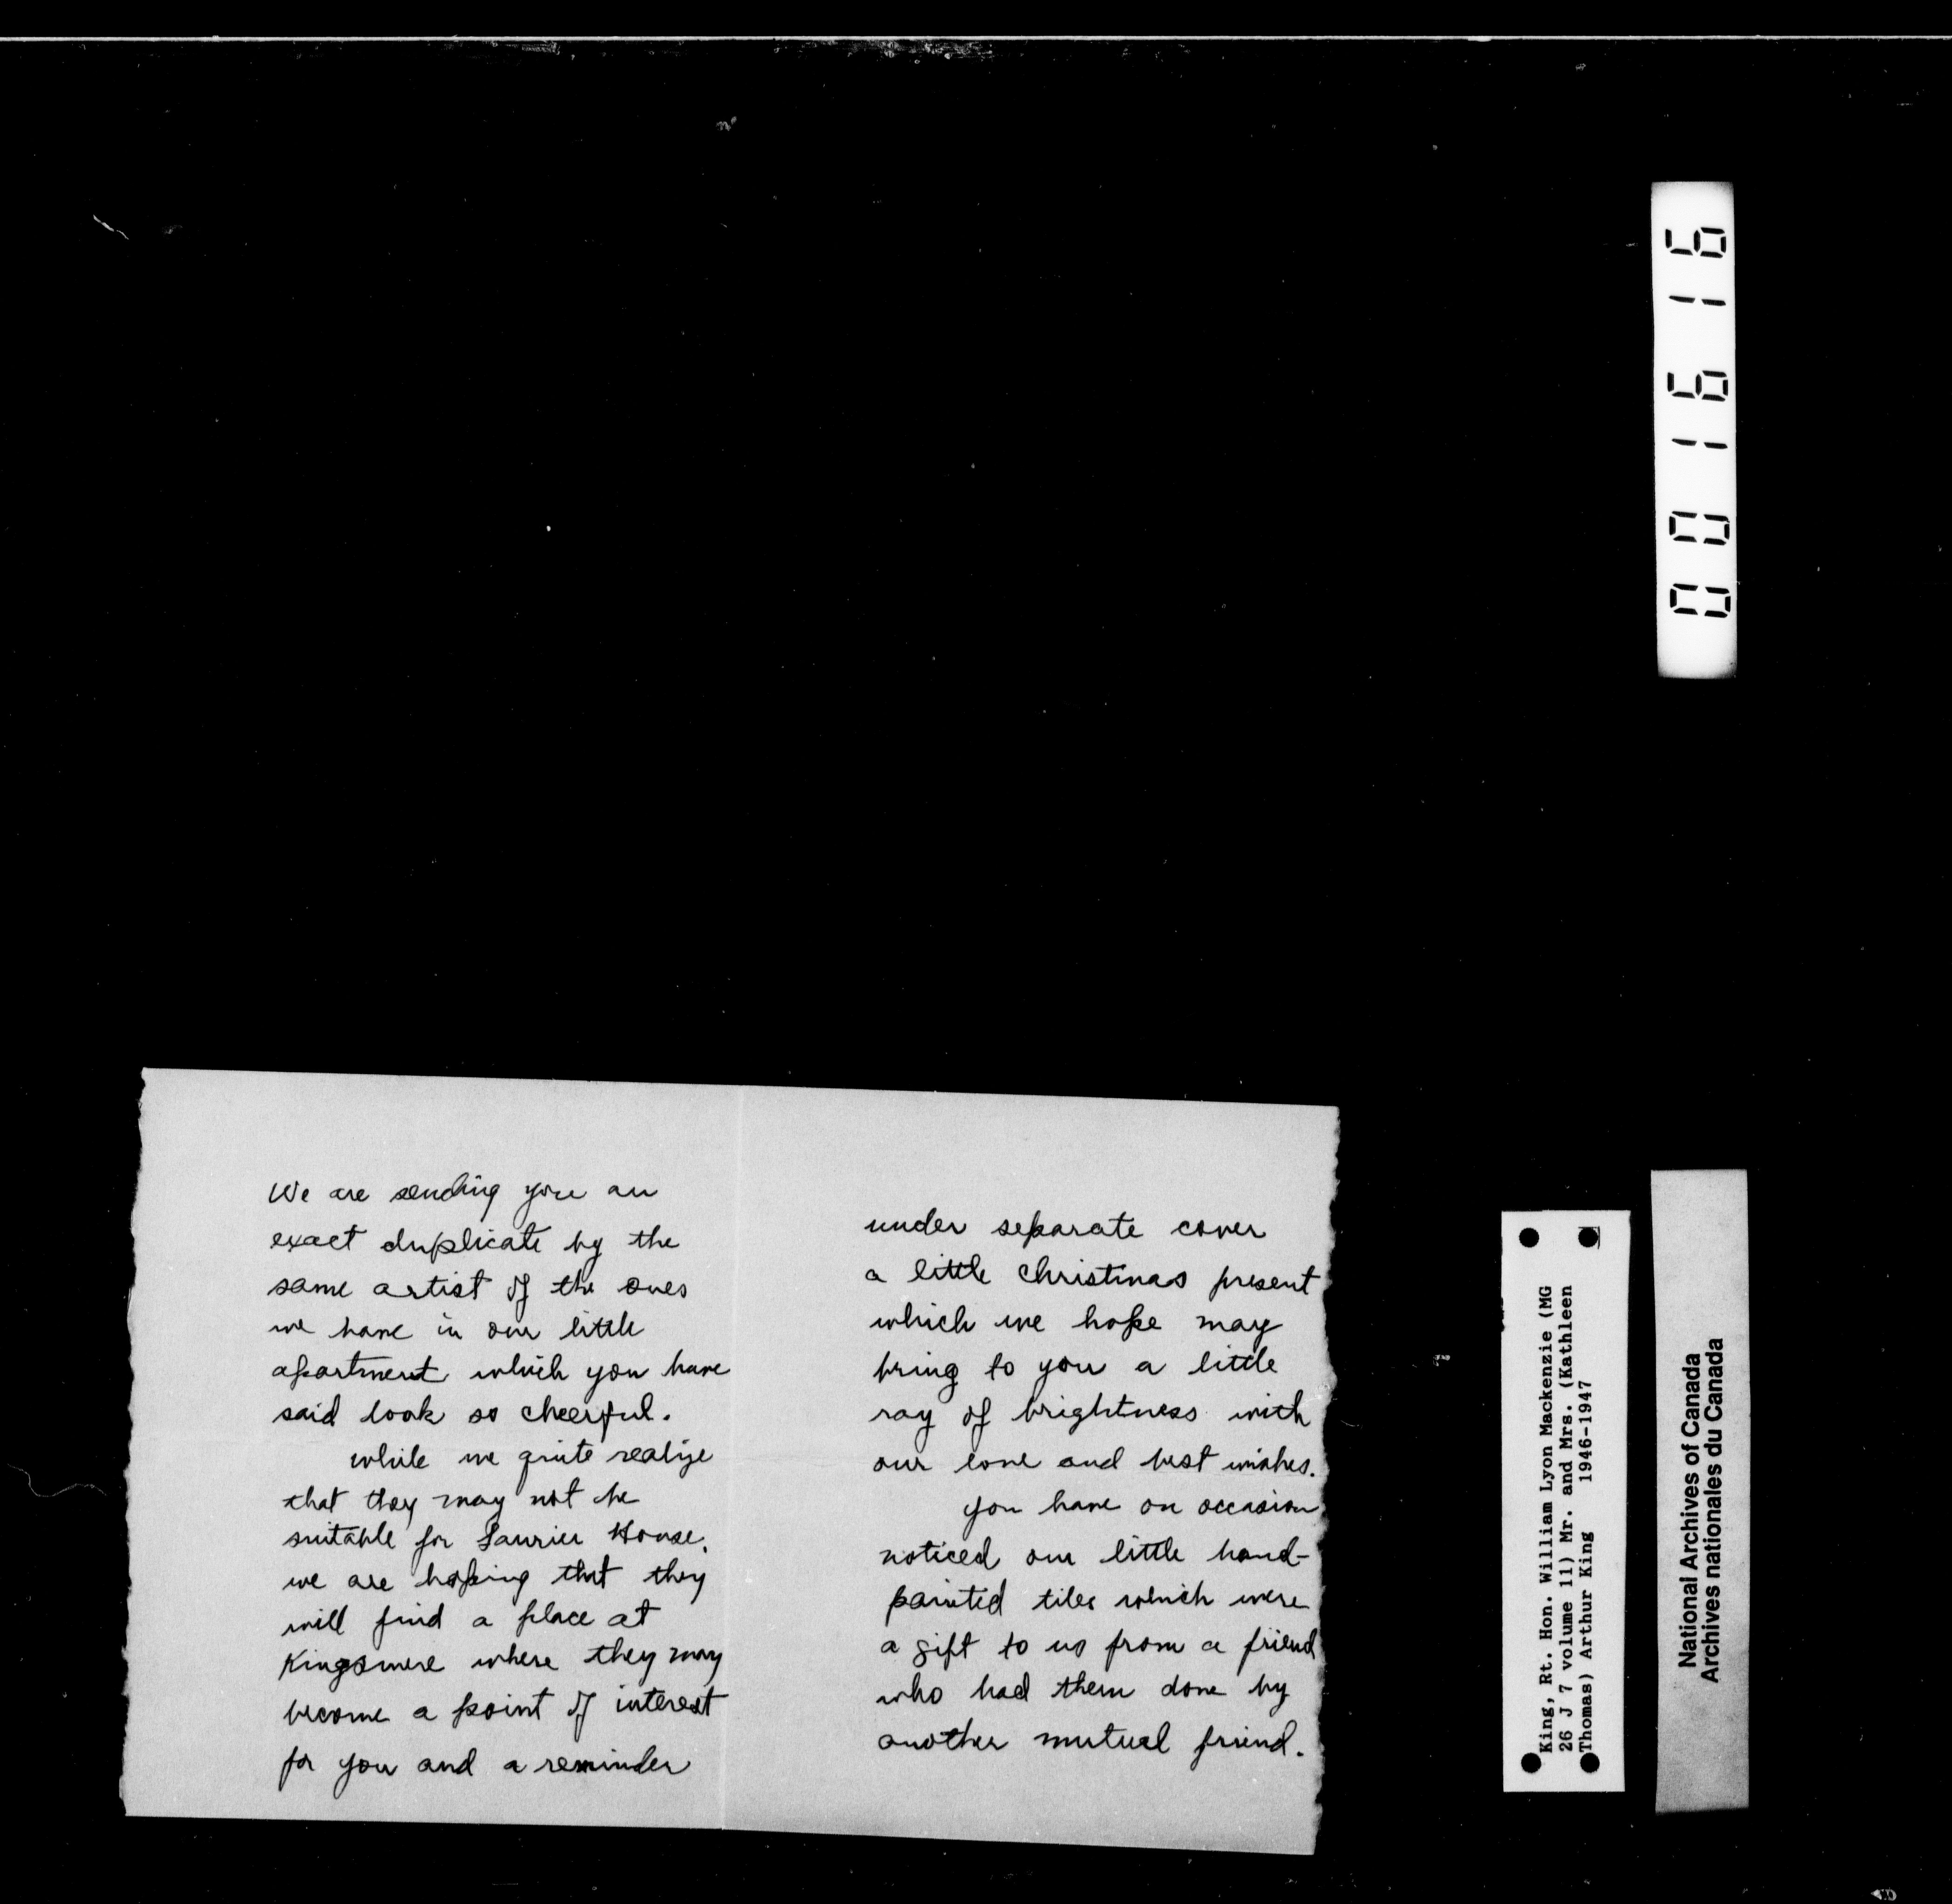 We are sending you an
exact duplicate by the
same artist of the ones
we have in our little
apartment which you have
said look so cheerful.
while we quite realize
that they may not be
suitable for Laurier House,
we are hoping that they
will find a place at
Kingsmere where they may
become a point of interest
for you and a reminder
under separate cover
a little Christmas present
which we hope may
bring to you a little
ray of brightness with
our love and best wishes.
you have on occasion
noticed our little hand-
painted tiles which were
a gift to us from a friend
who had them done by
another mutual friend.
King, Rt. Hon. William Lyon Mackenzie (MG
26 J 7 volume 11) Mr. and Mrs. (Kathleen
Thomas) Arthur King 1946-1947
National Archives of Canada
Archives nationales du Canada
001616